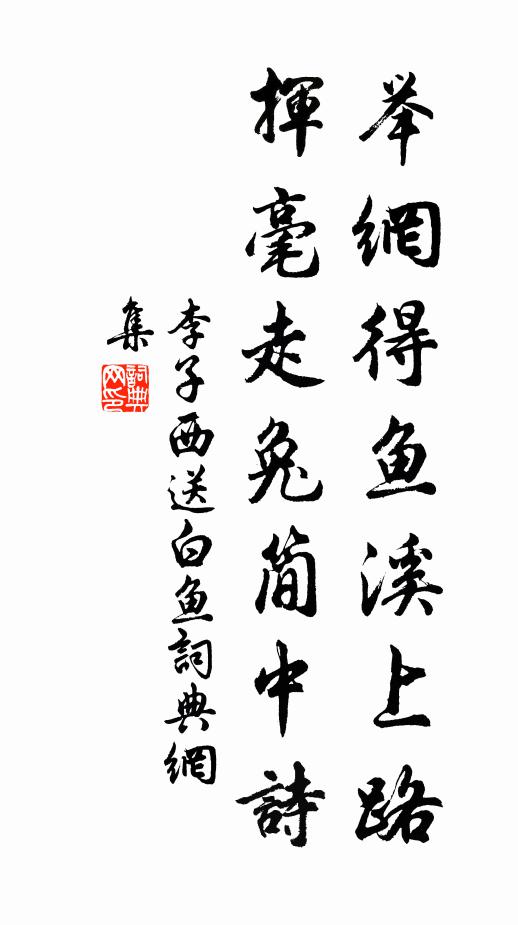 举網得鱼溪上路
揮毫走兔简中詩
李子西送白鱼詞典網
集
詞典
网印